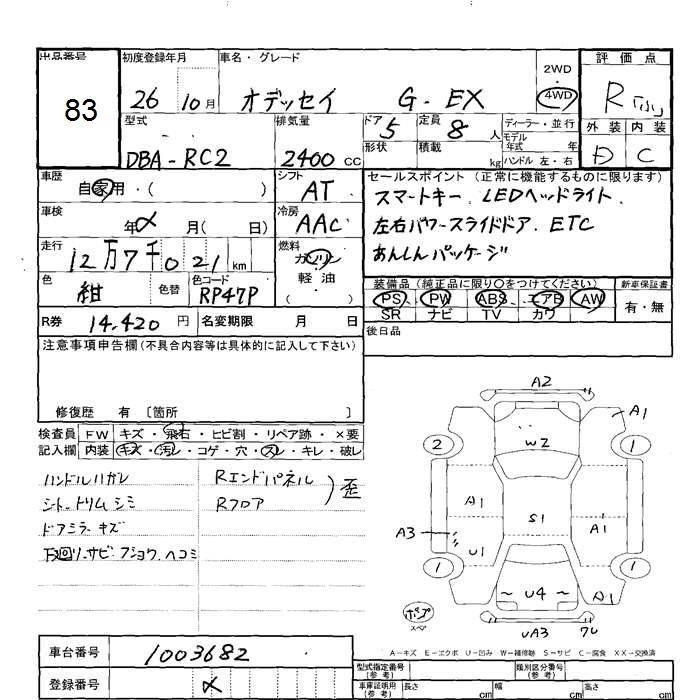 出品番号 83
初度登録年月 26 10月
車名・グレード オデッセイ G・EX
2WD・4WD
評価点 R「ふ」
外装 D 内装 C
型式 DBA-RC2
排気量 2400 CC
ドア 5
形状
定員 8 人
積載 kg
ディーラー・並行
モデル年式 年
ハンドル 左・右
車歴 自家用・( )
シフト AT
車検 年 月( 日)
冷房 AAC
走行 12万7千021km
燃料 ガソリン 軽油 ( )
色 紺 色替 色コード RP47P
R券 14,420 円 名変期限 月 日
セールスポイント (正常に機能するものに限ります)
スマートキー. LEDヘッドライト.
左右パワースライドドア. ETC
あんしんパッケージ
装備品(純正品に限り〇をつけてください) 新車保証書
PS PW ABS エアB AW 有・無
SR ナビ TV カワ
後日品
注意事項申告欄(不具合内容等は具体的に記入して下さい)
修復歴 有 〔箇所 〕
検査員記入欄
FW キズ・飛石・ヒビ割・リペア跡・×要
内装 キズ・汚レ・コゲ・穴・スレ・キレ・破レ
ハンドルハガレ
シートトリムシミ
ドアミラーキズ
下廻り.サビ・フショク.ヘコミ
Rエンドパネル
Rフロア
歪
A2
A1
W2
2
1
A1
S1
A1
A3
U1
1
1
U4
A1
UA3
ワレ
スペア
A-キズ E-エクボ U-凹み W-補修跡 S-サビ C-腐食 XX-交換済
車台番号 1003682
登録番号
型式指定番号(参考)
類別区分番号(参考)
車庫証明用(参考) 長さ cm 幅 cm 高さ cm